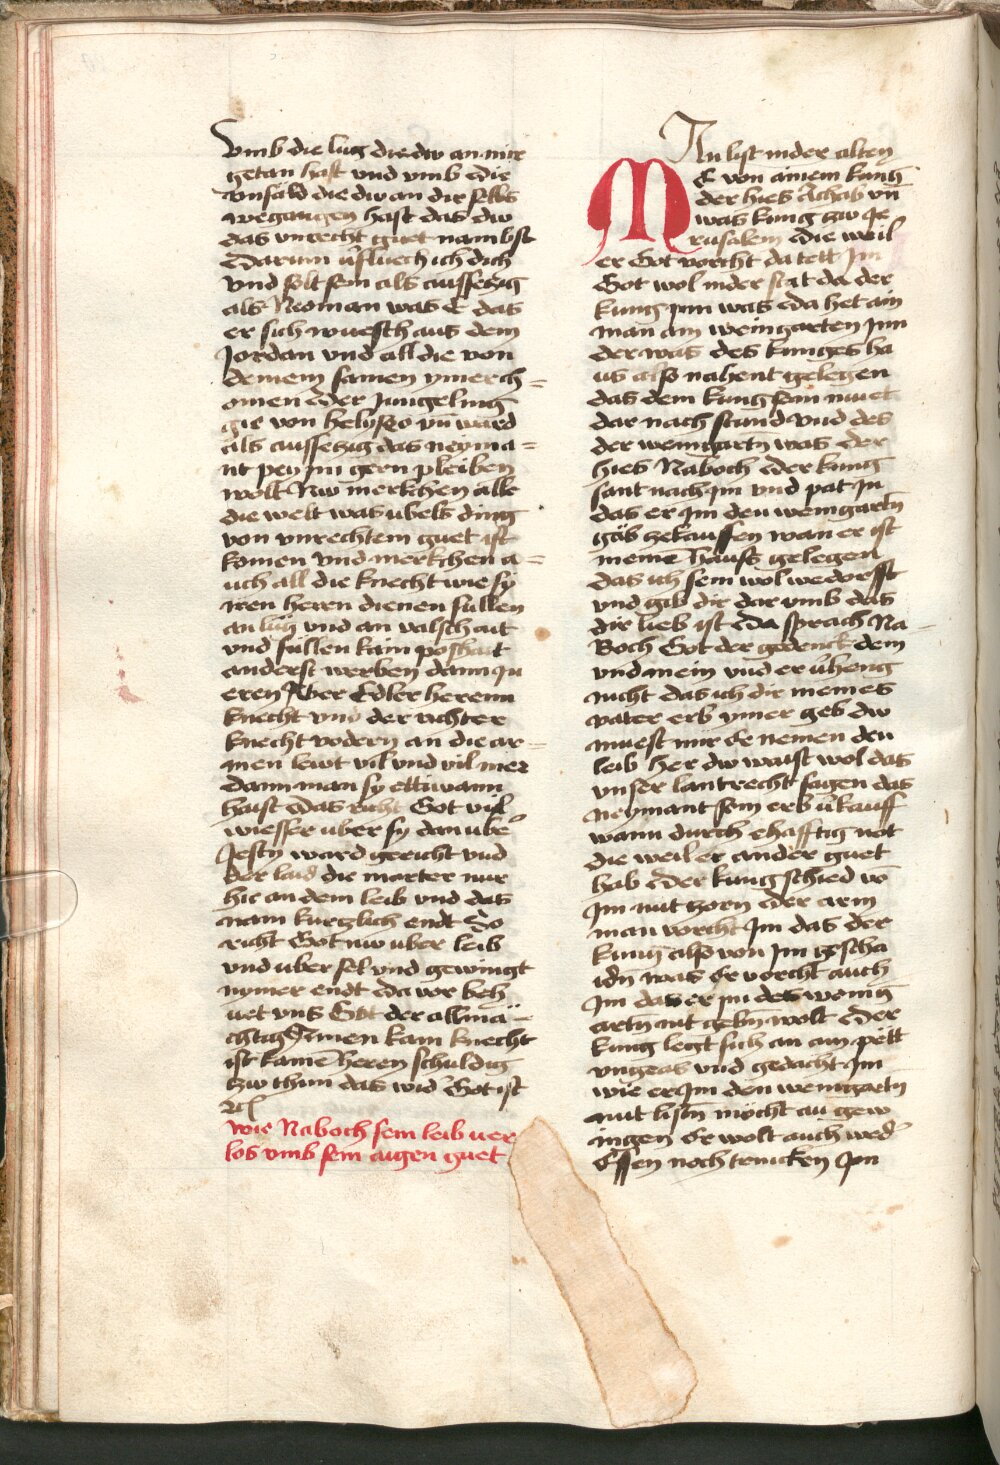 vmb die lug die dw an mir
getan hast vnd vmb die
vnfald die dw an dir selbs
wegangen hast das dw
das vnrecht guet nambst
Darum v̄fluech ich dich
vnd solt sein als aussetzig
als Neoman was E das
er sich wuesch aus dem
Jordan vnd all die von
deinem samen ymer ch=
omen Der Jungeling
gie von helyseo vn̄ ward
als aussetzig das neyma=
nt pey im gern pleiben
wolt Nw merkchen alle
die welt was ubels ding
von vnrechtem guet ist
komen vnd merkchen a=
uch all die knecht wie sy
iren herrn dienen sullen
an lug vnd an valschait
vnd sullen kain poshait
anderst werben dann in
eren Aber Edler herenn
knecht vnd der richter
knecht vodern an die ar=
men lewt vil vnd vil mer
dann man sy ettwann
haist das richt Got vil
wirsser uber sy dan ube'
Jesty ward gericht vnd
der laid die marter nur
hie an dem leib vnd das
nam kurtzlich endt So
richt Got nw uber leib
vnd uber sel vnd gewingt
nymer endt da vor beh
uet vns Got der allmä=
chtig Amen kain knecht
ist kaine heren schuldig
zw thun das wid' Got ist
wie Naboch sein leib uer
los vmb sein aigen guet
MAn list in der alten
E von ainem kung
der hies Achab vn̄
was kung zw Je
rusalem die weil
er Got vorcht da tett Im
Got wol in der stat da der
kung inn was da het ain
man ain weingarten Inn
der was des kunges ha
us also nahent gelegen
das dem kung sein muet
dar nach stund vnd des
der weingartn̄ was der
hies Naboch der kung
sant nach im vnd pat in
das er im den weingartn̄
gäb zekauffen wan er ist
meine hauss gelegen
das ich sein wol wedorfft
vnd gib dir dar vmb das
dir lieb ist da sprach Na
Boch Got der gedenck dem
vnd mein vnd er v̄heng
nicht das ich dir meines
vater erb ymer geb dw
muest mir Ee nemen den
leib her dw waist wol das
vnser lantrecht sagen das
neymant sein erb v̄kauff
wann durch ehafftig not
die weil er ander guet
hab Der kung schied vō
Im mit zorn Der arm
man vorcht Im das der
kung also von Im gescha
idn̄ was Er vorcht auch
Im das er im des weing
artn̄ nit gebn̄ wolt Der
kung legt sich an ain pett
vngeas vnd gedacht Im
wie er Im den weingartn̄
mit listn̄ möcht an gew
ingen Er wolt auch wed'
Essen noch trincken Inn